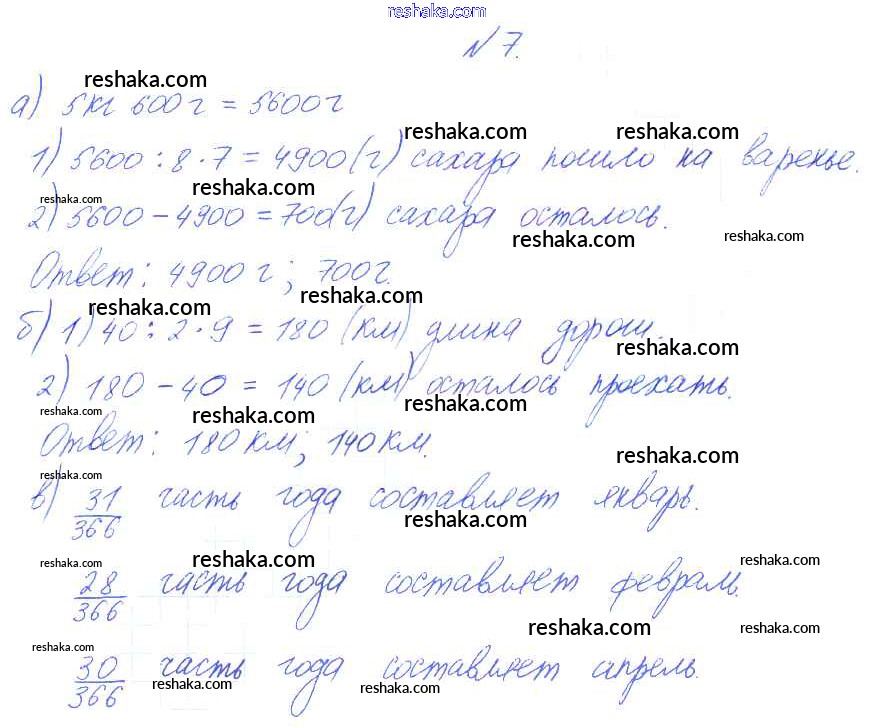 reshaka.com
№7.
reshaka.com
а) 5кг 600г = 5600г
reshaka.com reshaka.com
1) 5600 : 8 · 7 = 4900(г) сахара пошло на варенье.
reshaka.com reshaka.com
2) 5600 - 4900 = 700(г) сахара осталось.
reshaka.com reshaka.com
Ответ: 4900 г; 700г.
reshaka.com reshaka.com
б) 1) 40 : 2 · 9 = 180 (км) длина дороги.
reshaka.com
2) 180 - 40 = 140 (км) осталось проехать.
reshaka.com reshaka.com reshaka.com
Ответ: 180 км; 140 км.
reshaka.com reshaka.com
в) 31/366 часть года составляет январь.
reshaka.com
reshaka.com reshaka.com reshaka.com
28/366 часть года составляет февраль.
reshaka.com reshaka.com
reshaka.com
30/366 часть года составляет апрель.
reshaka.com reshaka.com